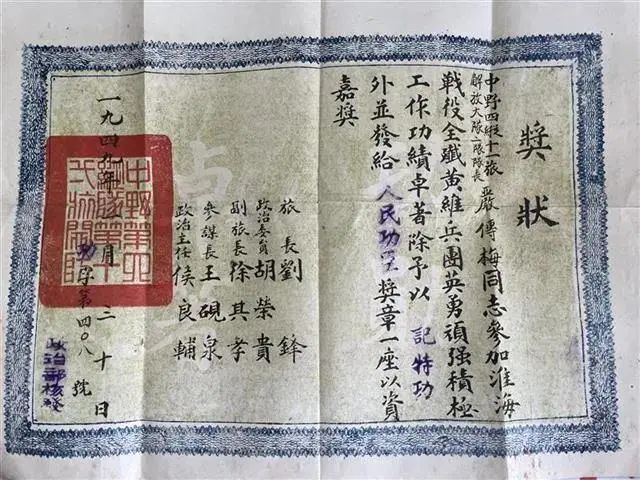 獎狀
中野四縱十一旅
解放大隊一隊隊長 嚴傳梅同志參加淮海
戰役全殲黃維兵團英勇頑强積極
工作功績卓著除予以 記特功
外並發給 人民功臣 獎章一座以資
嘉獎
旅長劉鋒
政治委員胡榮貴
副旅長徐其孝
參謀長王硯泉
政治主任侯良輔
一九四九年 月三十日
功字第四〇八號
政治部核發